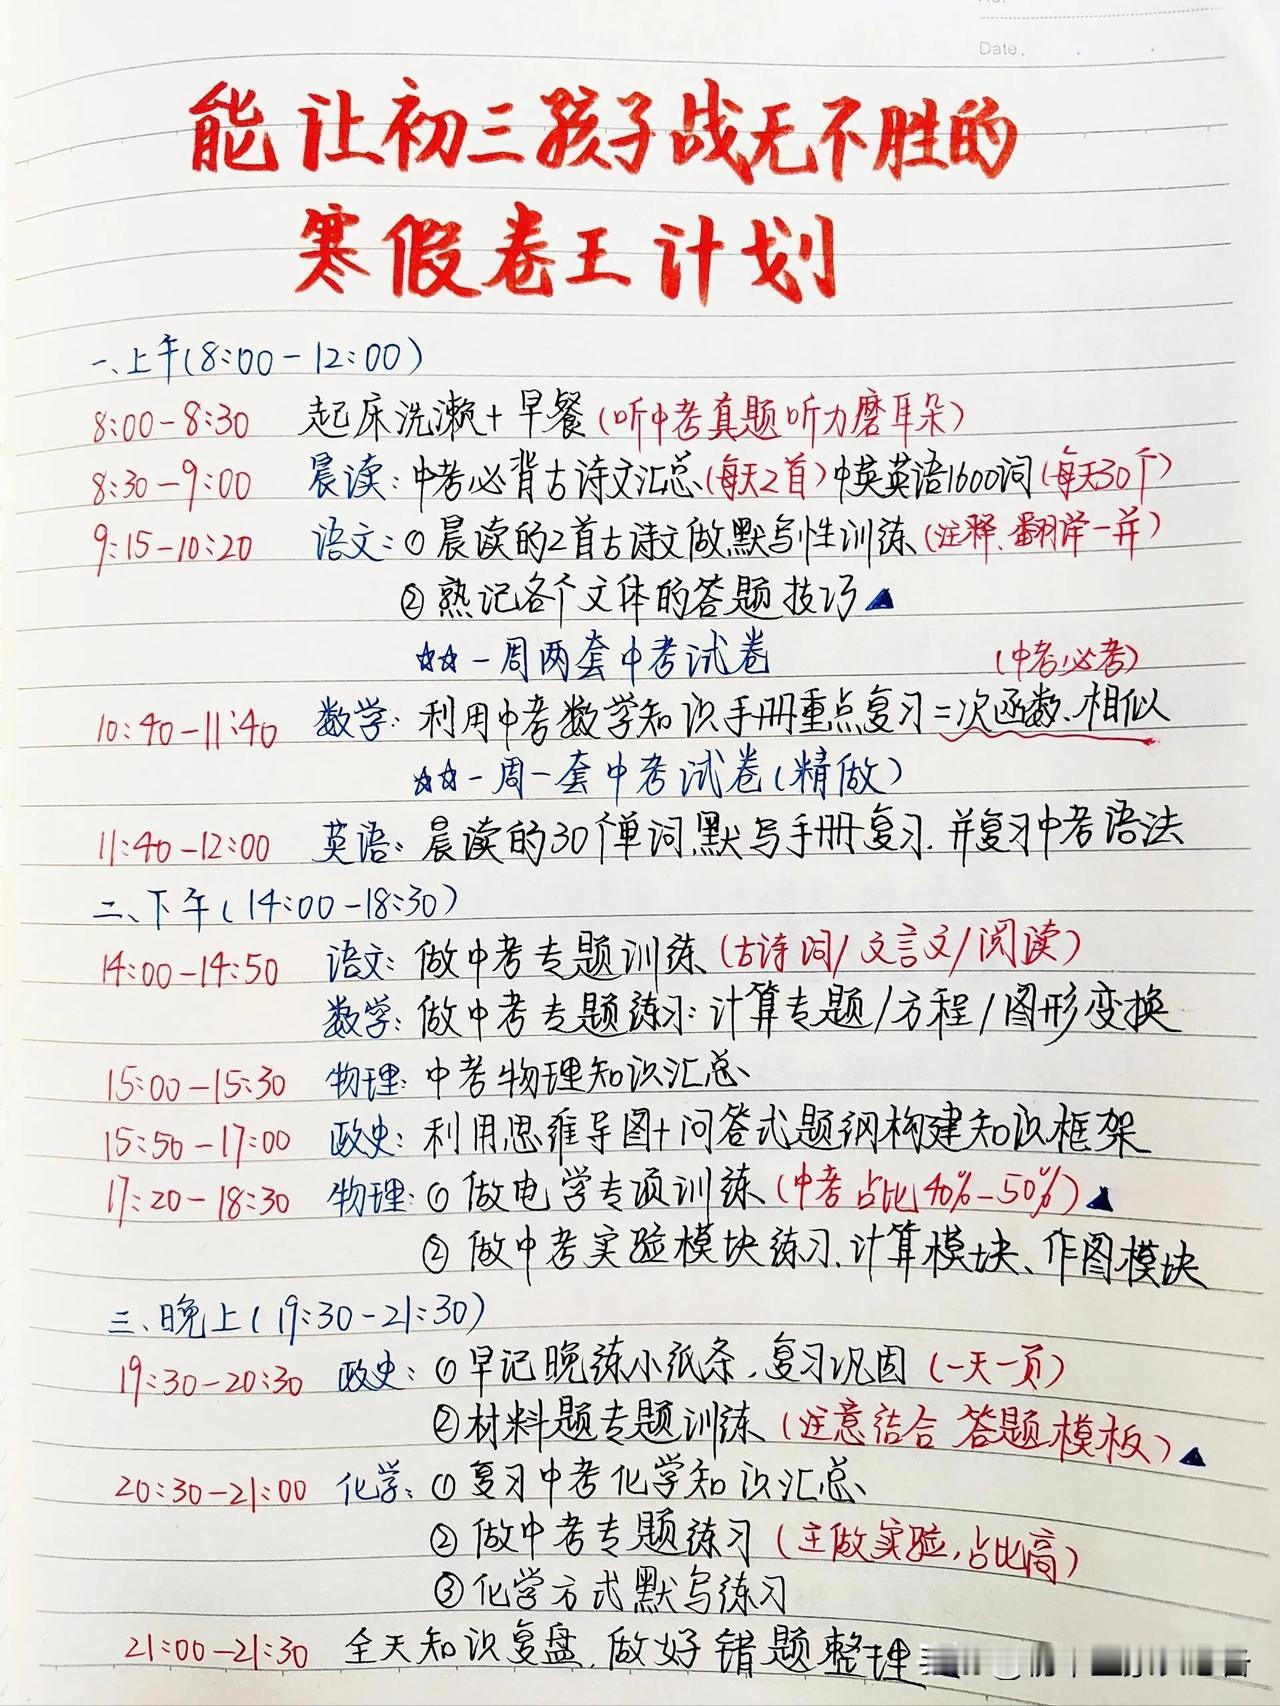 Date.
能让初三孩子战无不胜的
寒假卷王计划
一、上午(8:00-12:00)
8:00-8:30 起床洗漱+早餐(听中考真题听力磨耳朵)
8:30-9:00 晨读:中考必背古诗文汇总(每天2首)中英英语1600词(每天30个)
9:15-10:20 语文:①晨读的2首古诗文做默写性训练(注释、翻译一并)
②熟记各个文体的答题技巧▲
☆☆一周两套中考试卷 (中考必考)
10:40-11:40 数学:利用中考数学知识手册重点复习二次函数、相似
☆☆一周一套中考试卷(精做)
11:40-12:00 英语:晨读的30个单词,默写手册复习.并复习中考语法
二、下午(14:00-18:30)
14:00-14:50 语文:做中考专题训练(古诗词/文言文/阅读)
数学:做中考专题练习:计算专题/方程/图形变换
15:00-15:30 物理:中考物理知识汇总
15:50-17:00 政史:利用思维导图+问答式题纲构建知识框架
17:20-18:30 物理:①做电学专项训练(中考占比40%-50%)▲
②做中考实验模块练习、计算模块、作图模块
三、晚上(19:30-21:30)
19:30-20:30 政史:①早记晚练小纸条,复习巩固(一天一页)
②材料题专题训练(注意结合答题模板)▲
20:30-21:00 化学:①复习中考化学知识汇总
②做中考专题练习(主做实验,占比高)
③化学方式默写练习
21:00-21:30 全天知识复盘,做好错题整理